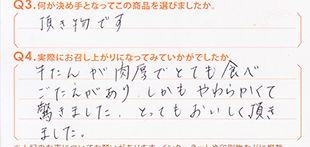 Q3.何が決め手となってこの商品を選びましたか。
頂き物です
Q4.実際にお召し上がりになってみていかがでしたか
牛たんが肉厚でとても食べ
ごたえがあり しかもやわらかくて
驚きました。とってもおいしく頂き
ました。